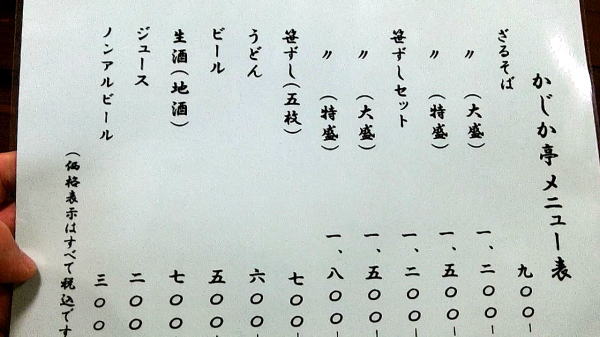 かじか亭 メニュー表
ざるそば 九〇〇-
〃 (大盛) 一、二〇〇-
〃 (特盛) 一、五〇〇-
笹ずしセット 一、二〇〇-
〃 (大盛) 一、五〇〇-
〃 (特盛) 一、八〇〇-
笹ずし(五枚) 七〇〇-
うどん 六〇〇-
ビール 五〇〇
生酒(地酒) 七〇〇
ジュース 二〇〇
ノンアルビール 三〇〇
(価格表示はすべて税込です